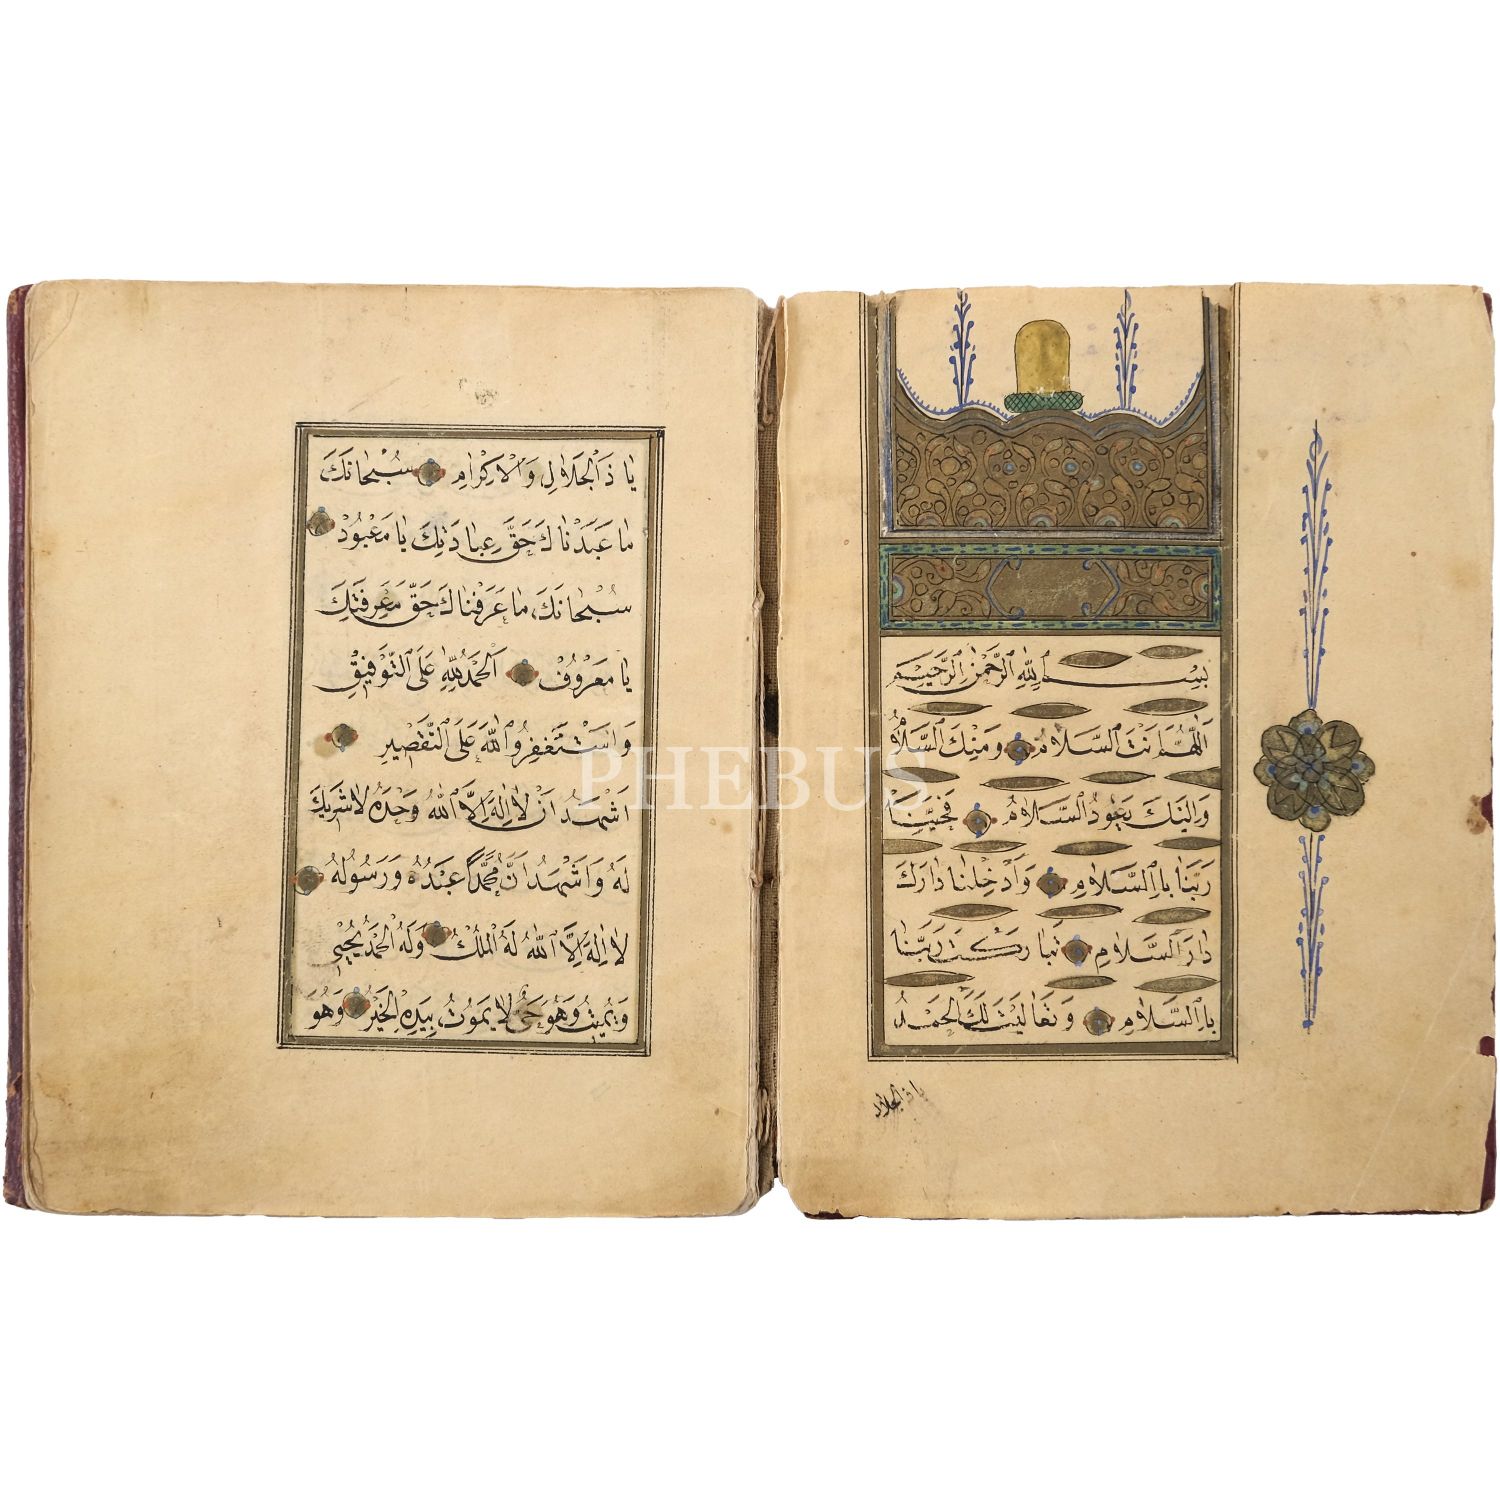 بِسْمِ اللّٰهِ الرَّحْمٰنِ الرَّحِيمِ
اَللّٰهُمَّ اَنْتَ السَّلَامُ وَمِنْكَ السَّلَامُ
وَاِلَيْكَ يَعُودُ السَّلَامُ فَحَيِّنَا
رَبَّنَا بِالسَّلَامِ وَاَدْخِلْنَا دَارَكَ
دَارَ السَّلَامِ تَبَارَكْتَ رَبَّنَا
بِالسَّلَامِ وَتَعَالَيْتَ لَكَ الْحَمْدُ
يا ذالجلال
يَا ذَالْجَلَالِ وَالْاِكْرَامِ سُبْحَانَكَ
مَا عَبَدْنَاكَ حَقَّ عِبَادَتِكَ يَا مَعْبُودْ
سُبْحَانَكَ مَا عَرَفْنَاكَ حَقَّ مَعْرِفَتِكَ
يَا مَعْرُوفْ اَلْحَمْدُ لِلّٰهِ عَلَى التَّوْفِيقِ
وَاَسْتَغْفِرُ اللّٰهَ عَلَى التَّقْصِيرِ
اَشْهَدُ اَنْ لَا اِلٰهَ اِلَّا اللّٰهُ وَحْدَهُ لَا شَرِيكَ
لَهُ وَاَشْهَدُ اَنَّ مُحَمَّدًا عَبْدُهُ وَرَسُولُهُ
لَا اِلٰهَ اِلَّا اللّٰهُ لَهُ الْمُلْكُ وَلَهُ الْحَمْدُ يُحْيِي
وَيُمِيتُ وَهُوَ حَيٌّ لَا يَمُوتُ بِيَدِهِ الْخَيْرُ وَهُوَ
PHEBUS